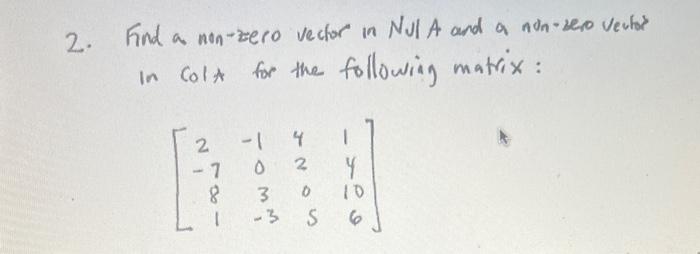 2. Find a non-zero vector in Nul A and a non-zero vector
in Col A for the following matrix:
2 -1 4 1
-7 0 2 4
8 3 0 10
1 -3 5 6